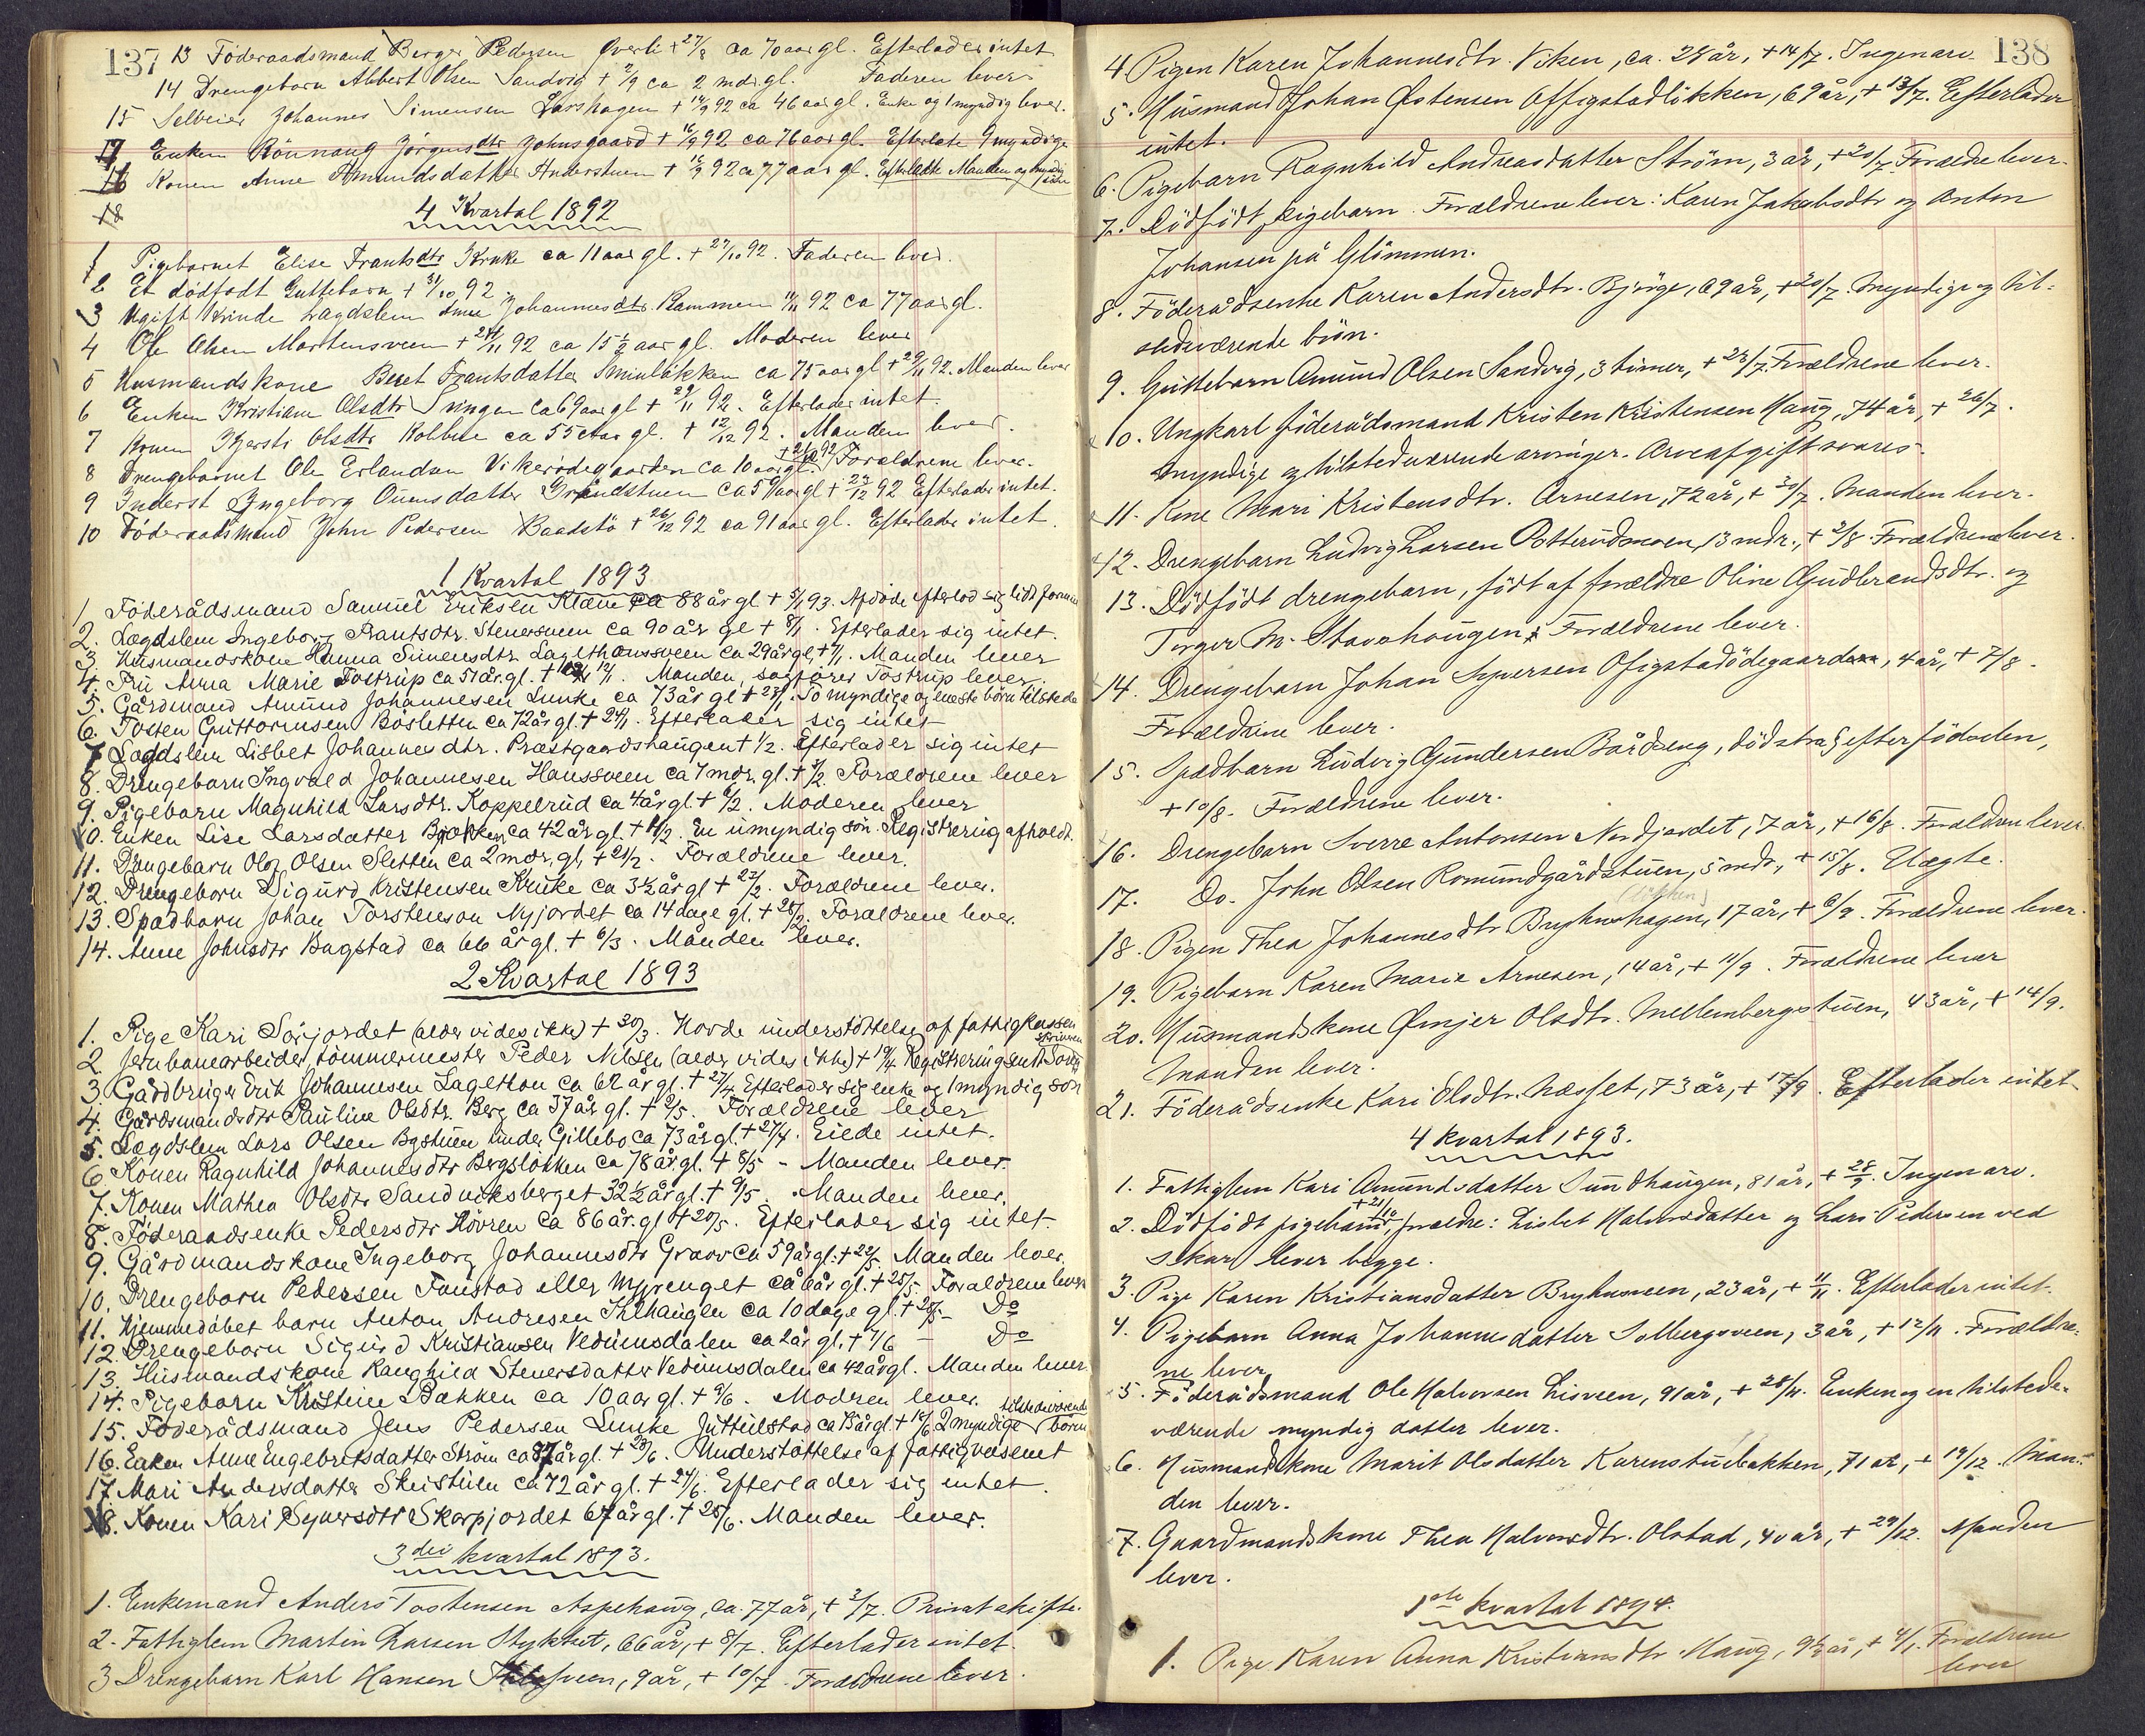 137
13 Föderaadsmand Berger Pedersen Qverli + 27/8 ca 70 aar gl. Efterlader intet
14 Drengebarn Albert Olsen Sandvig + 2/9 ca 2 mdr gl. Faderen lever
15 Selveier Johannes Simensen Larshagen + 14/9 92 ca 46 aar gl. Enke og 1 myndig lever.
17 Enken Rönnaug Jörgensdtr Johnsgaard + 16/9 92 ca 76 aar gl. Efterlate 9 myndige
16 Konen Anne Amundsdatter Anderstuen + 12/9 92 ca 77 aar gl. Efterladte Manden og myndig
18
4 Kvartal 1892
1 Pigebarnet Elise Frantsdtr Kruke ca 11 aar gl. + 27/10 92. Faderen lever.
2 Et dödfödt Guttebarn + 31/10 92
3 Ugift Kvinde Lægdslem Anne Johannesdtr Rammen 11/11 92 ca 77 aar gl.
4 Ole Olsen Mortensveen + 24/11 92 ca 15 1/2 aar gl. Moderen lever
5 Husmandskone Beret Frantsdatter Sminløkken ca 75 aar gl + 29/11 92. Manden lever
6 Enken Kristiane Olsdtr Svingen ca 69 aar gl + 29/11 92. Efterlader intet.
7 Konen Kjersti Olsdtr Kolbu ca 55 aar gl. + 12/12 92. Manden lever.
8 Drengebarnet Ole Erlandsen Vikerödegaarden ca 10 aar gl. + 21/12 92 Forældrene lever.
9 Inderst Ingeborg Ouensdatter Grandstuen ca 59 aar gl + 23/12 92 Efterlader intet.
10 Föderaadsmand John Pedersen Baadstö + 26/12 92 ca 91 aar gl. Efterlader intet.
1 Kvartal 1893
1 Föderådsmand Samuel Eriksen Klæve ca 88 år gl + 5/1 93. Afdöde efterlod sig lidt formue
2. Lægdslem Ingeborg Frantsdtr. Stenersveen ca 90 år gl + 8/1. Efterlader sig intet.
3. Husmandskone Hanna Simensdtr Lagethonssveen ca 29 år gl, + 7/1. Manden lever
4. Fru Anna Marie Tostrup ca 51 år. gl. + 12/1. Manden, sagförer Tostrup lever.
5. Gårdmand Amund Johannesen Lunke ca 73 år gl + 23/1. To myndige og eneste börn tilstede
6. Tosten Guttormsen Bosletten ca 72 år gl. + 24/1. Efterlader sig intet
7 Lægdslem Lisbet Johannesdtr. Præstgaardshaugen + 1/2. Efterlader sig intet
8. Drengebarn Ingvald Johannesen Hanssveen ca 7 mdr. gl. + 5/2. Forældrene lever
9. Pigebarn Magnhild Larsdtr. Koppelrud ca 4 år gl + 6/2. Moderen lever
10. Enken Lise Larsdatter Bjørken ca 42 år gl. + 11/2. En umyndig sön. Registrering afholdt.
11. Drengebarn Olaf Olsen Sletten ca 2 mdr, gl, + 21/2. Forældrene lever.
12. Drengebarn Sigurd Kristensen Kruke ca 3 1/2 år gl + 22/2. Forældrene lever.
13. Spædbarn Johan Torstenson Nyjordet ca 14 dage gl. + 28/2. Forældrene lever.
14. Anne Johnsdtr Bagstad ca 66 år gl. + 6/3. Manden lever.
2 Kvartal 1893
1. Pige Kari Sørjordet (alder vides ikke) + 30/3. Havde understöttelse af fattigkassen
2. Jernbanearbeider, tömmermester Peder Nilsen (alder vides ikke) + 19/4 Registrering
3. Gårdbruger Erik Johannesen Lagethon ca 62 år gl. + 27/4 Efterlader sig enke og 1 myndig sön
4. Gårdsmandsdtr Pauline Olsdtr. Berg ca 37 år gl. + 2/5. Forældrene lever
5. Lægdslem Lars Olsen Bystuen under Gillebo ca 73 år gl. + 27/4. Eiede intet.
6 Konen Ragnhild Johannesdtr Bergslökken ca 78 år gl. + 8/5 - Manden lever.
7. Konen Mathea Olsdtr Sandviksberget 32 1/2 år gl. + 9/5. Manden lever.
8. Föderaadsenke Pedersdtr Hövren ca 86 år. gl + 20/5. Efterlader sig intet.
9. Gårdmandskone Ingeborg Johannesdtr Graav ca 59 år gl. + 22/5. Manden lever.
10. Drengebarn Pedersen Faustad eller Myrenget ca 6 år gl. + 25/5. Forældrene lever
11. Hjemmedöbet barn Anton Andresen Thlhaugen ca 10 dage gl. + 25/5 - Do
12. Drengebarn Sigurd Kristiansen Vedumsdalen ca 2 år gl. + 7/6 - Do
13. Husmandskone Ragnhild Stenersdatter Vedumsdalen ca 42 år gl. Manden lever.
14. Pigebarn Kristine Bakken ca 10 aar gl. + 9/6. Modren lever.
15. Föderådsmand Jens Pedersen Lunke Jutulstad ca 75 år gl. + 18/6 2 myndige tilstedeværende börn
16. Enken Anne Engebretsdatter Ström ca 87 år gl. + 23/6. Understöttelse af fattigvæsenet
17 Mari Andersdatter Skeistuen ca 72 år gl. + 24/6. Efterlader sig intet.
18. Konen Kari Syversdtr Skarpjordet 67 år gl. + 25/6. Manden lever.
3die kvartal 1893.
1. Enkemand Anders Tostensen Aspehaug, ca. 77 år, + 2/7. Privat skifte.
2. Fattiglem Martin Larsen Stykket, 66 år, + 8/7. Efterlader intet.
3 Drengebarn Karl Hansen 9 år, + 10/7. Forældrene lever.
138
4 Pigen Karen Johannesdtr. Viken, ca. 28 år, + 14/7. Ingen arv.
5. Husmand Johan Östensen Offigstadlökken, 69 år, + 13/7. Efterlader
intet.
6. Pigebarn Ragnhild Andreasdatter Ström, 3 år, + 20/7. Forældre lever.
7. Dödfödt pigebarn. Forældrene lever: Karen Jakobsdtr og Anton
Johansen på Glömmen.
8. Föderådsenke Karen Andersdtr. Bjørge, 69 år, + 20/7. Myndige og til-
stedeværende börn.
9. Guttebarn Amund Olsen Sandvig, 3 timer, + 23/7. Forældrene lever.
10. Ungkarl föderådsmand Kristen Kristensen Haug, 74 år, + 26/7.
Myndige og tilstedeværende arvinger. Arveafgift svares.
11. Kone Mari Kristensdtr. Arnesen, 72 år, + 30/7. Manden lever.
12. Drengebarn Ludvig Larsen Potterudmoen, 13 mdr., + 2/8. Forældrene lever.
13. Dödfödt drengebarn, födt af forældre Oline Gudbrandsdtr. og
Torger M. Stavehaugen; Forældrene lever.
14. Drengebarn Johan Syversen Ofigstadödegaard, 4 år, + 7/8.
Forældrene lever.
15. Spædbarn Ludvig Gundersen Bårdseng, död strax efter födselen,
+ 10/8. Forældrene lever.
16. Drengebarn Sverre Antonsen Nordjordet, 7 år, + 16/8. Forældrene lever.
17. Do. John Olsen Romundgårdstuen, 5 mdr., + 15/8. Uægte.
18. Pigen Thea Johannesdtr. Bryhnshagen, 17 år, + 6/9. Forældrene lever.
19. Pigebarn Karen Marie Arnesen, 14 år, + 11/9. Forældrene lever
20. Husmandskone Ønjer Olsdtr. Mellembergstuen, 43 år, + 14/9.
Manden lever.
21. Föderådsenke Kari Olsdtr. Næsset, 73 år, + 17/9. Efterlader intet
4 kvartal 1893.
1. Fattiglem Kari Amundsdatter Sundhaugen, 81 år, + 28/9. Ingen arv.
2. Dödfödt pigebarn + 21/10, forældre: Lisbet Halvorsdatter og Lars Pedersen ved
Skar, lever begge.
3. Pige Karen Kristiansdatter Bryhnsveen, 23 år, + 11/11. Efterlader intet.
4. Pigebarn Anna Johannesdatter Solbergsveen, 3 år, + 12/11. Forældre-
ne lever
5. Föderådsmand Ole Halvorsen Lisveen, 91 år, + 28/11. Enken og en tilstede-
værende myndig datter lever.
6. Husmandskone Marit Olsdatter Karenstuebakken, 71 år, + 19/12. Man-
den lever.
7. Gaardmandskone Thea Halvorsdtr. Olstad, 40 år, + 29/12. Manden
lever.
1ste kvartal 1894.
1. Pige Karen Anna Kristiansdtr. Haug, 9 1/2 år, + 4/1. Forældrene
lever